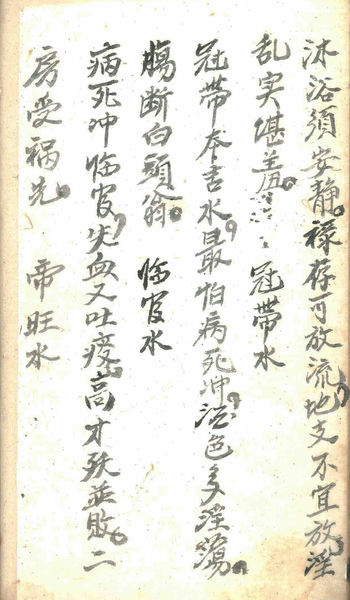 沐浴须安静。禄存可放流，地支不宜放，淫
乱实堪羞。 冠带水
冠带本吉水，最怕病死冲，酒色多淫荡。
肠断白頭翁。 临官水
病死冲临官，失血又吐痰，高才殀並败，二
房受祸先。 帝旺水